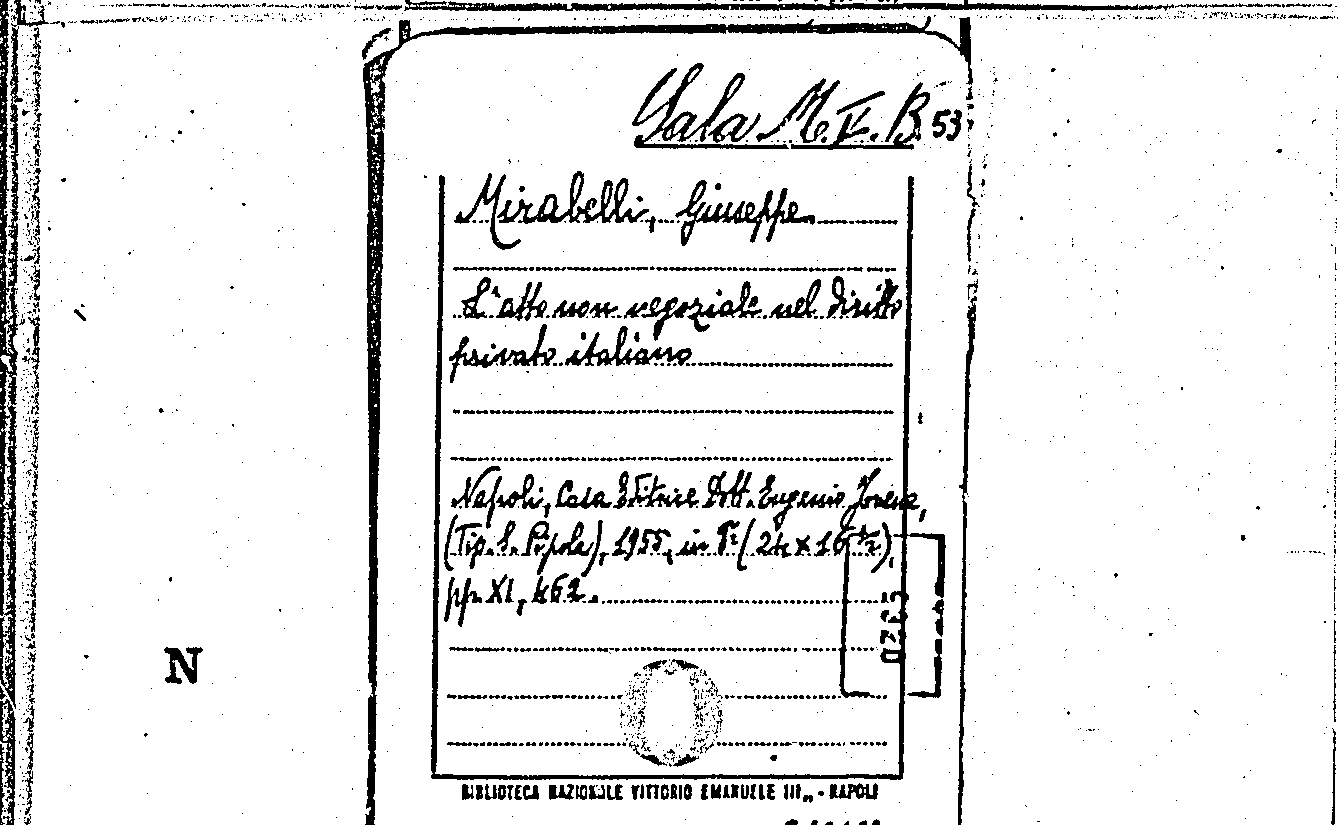 Sala M. V. B. 53
Mirabelli, Giuseppe
L'atto non negoziale nel diritto
privato italiano
Napoli, Casa Editrice Dott. Eugenio Jovene,
(Tip. S. Pipola), 1955, in 8º (24 x 16 ½),
pp. XI, 462.
N
BIBLIOTECA NAZIONALE VITTORIO EMANUELE III„ - NAPOLI